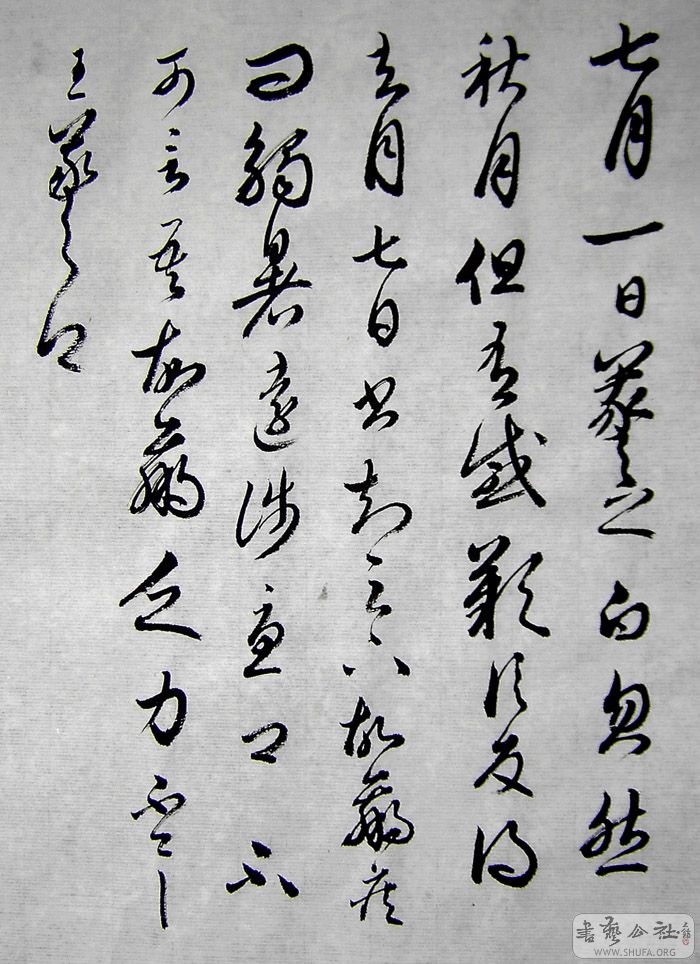 七月一日羲之白忽然
秋月但有感歎信反得
去月七日書知足下故羸疾
問觸暑遠涉憂卿不
可言吾故羸乏力不具
王羲之白
書藝公社
WWW.SHUFA.ORG